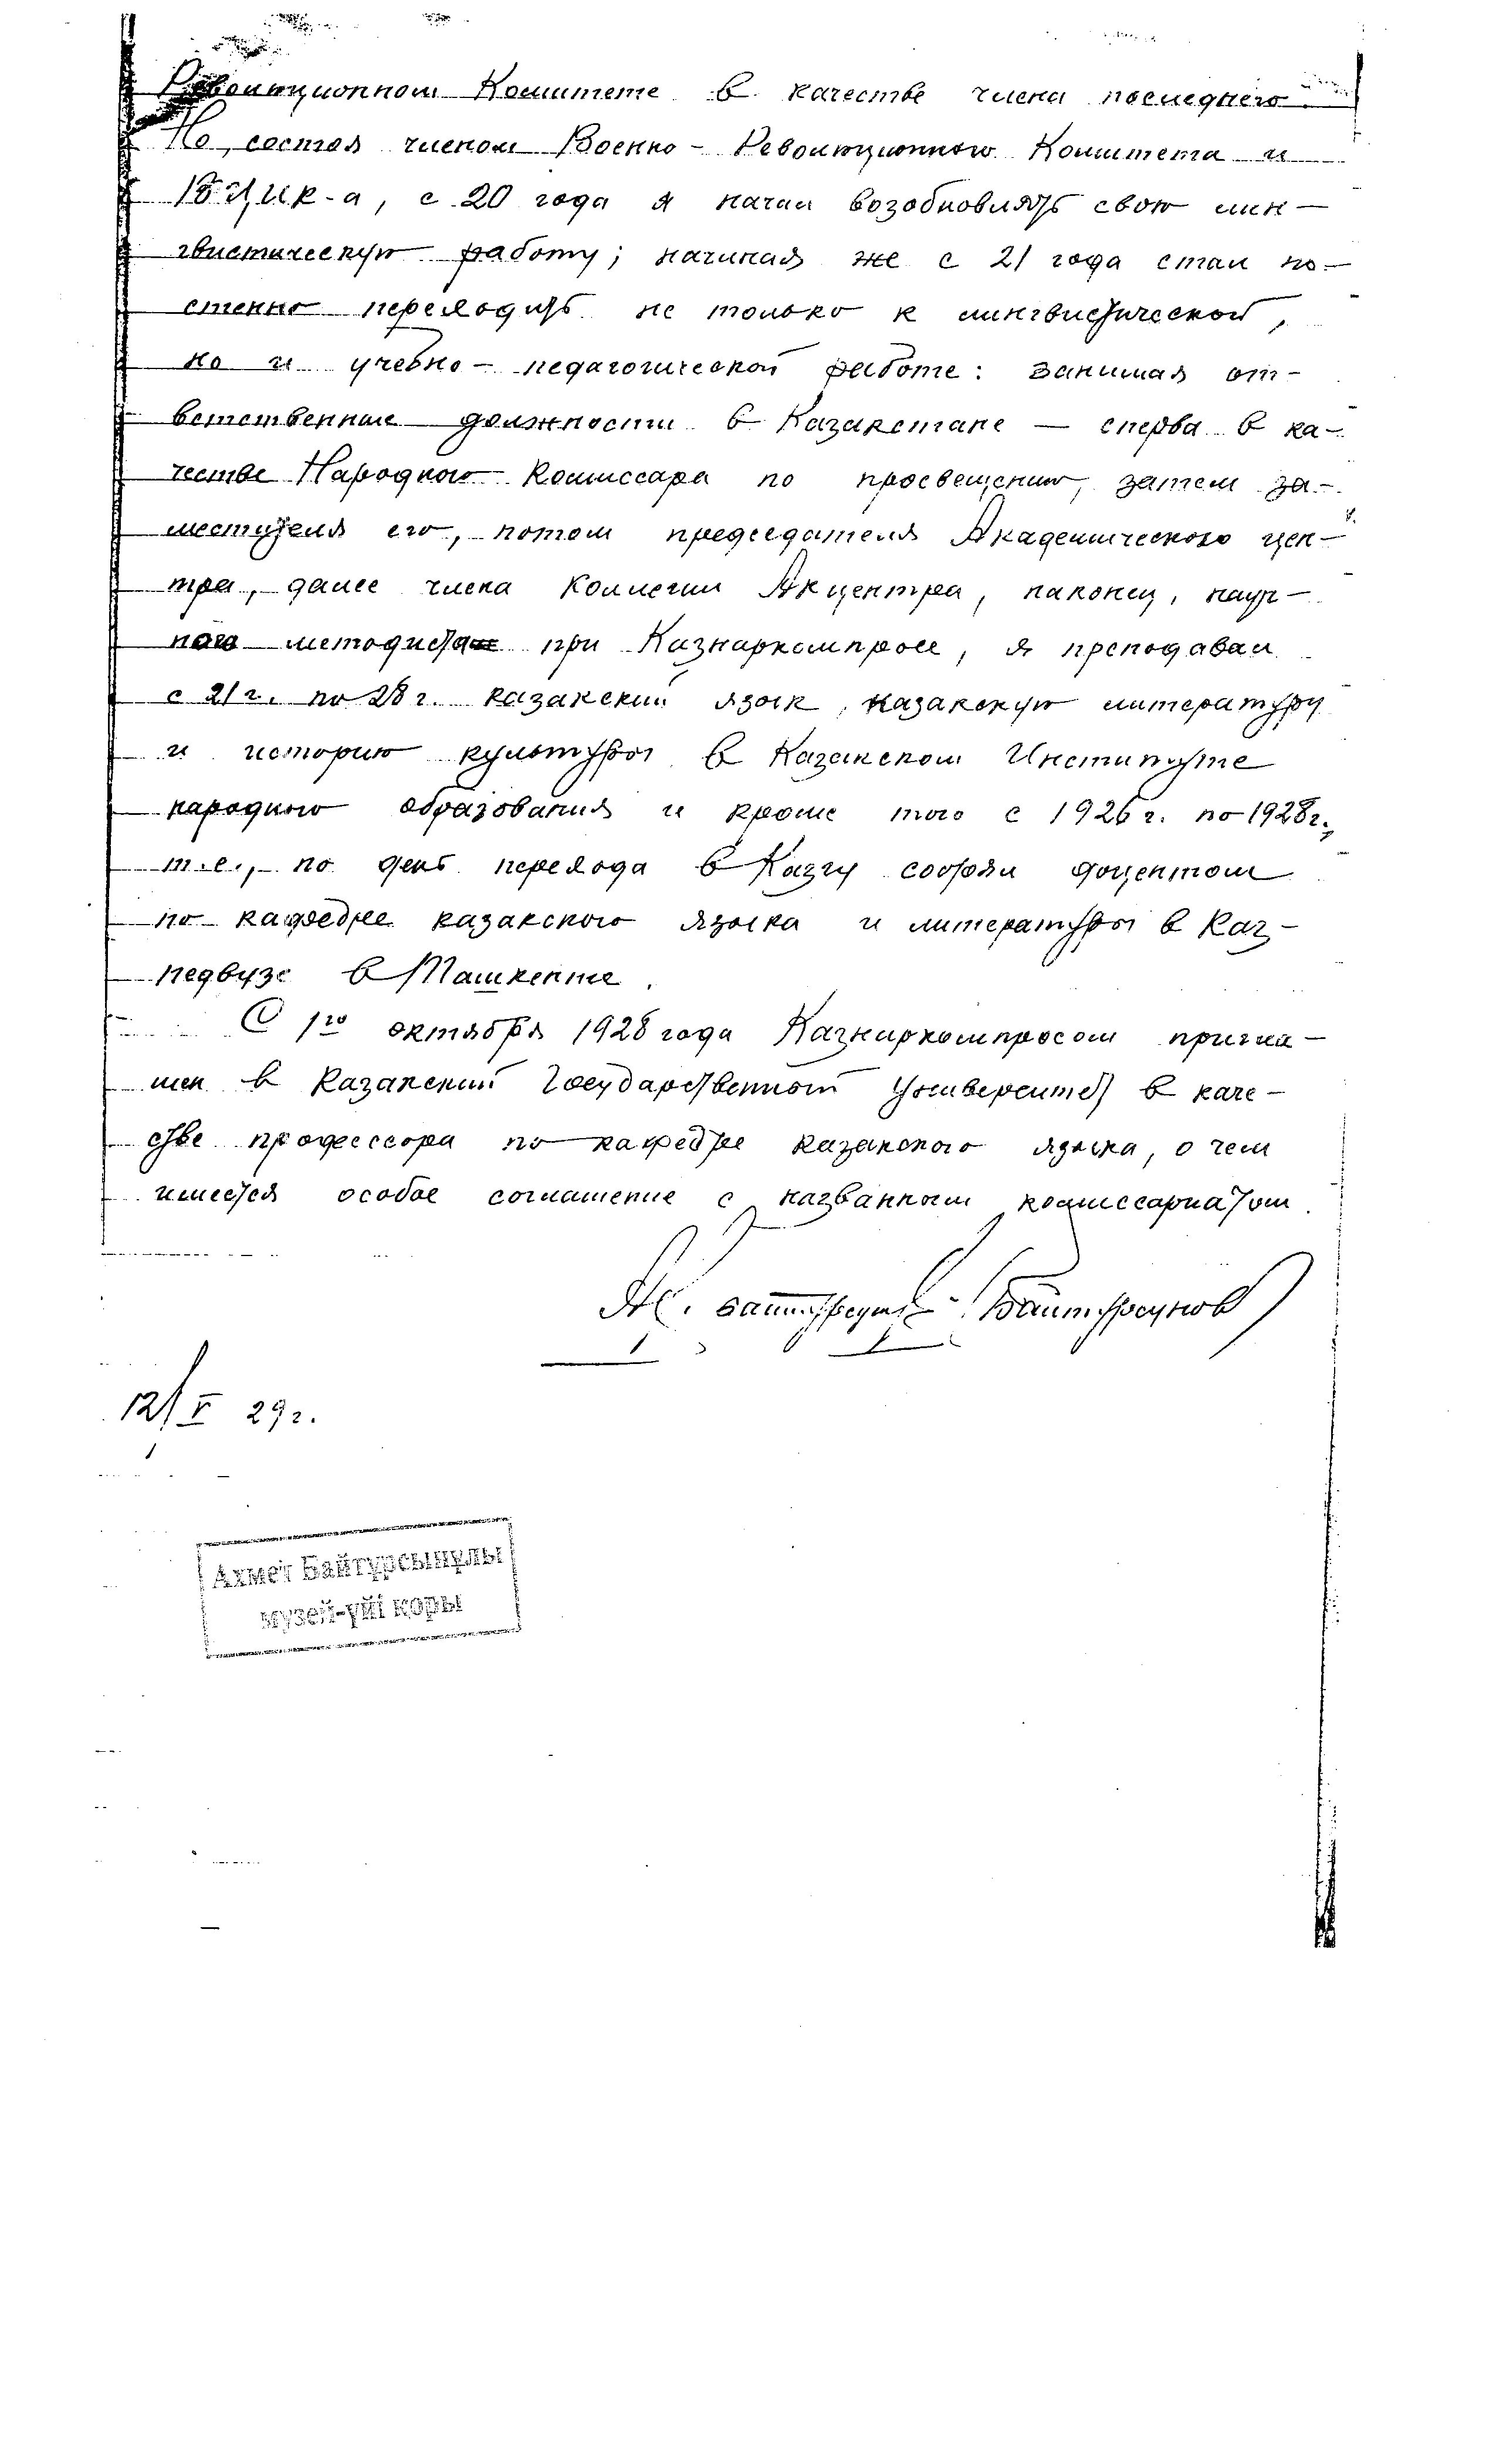 Революционном Комитете в качестве члена последнего.
Но, состоя членом Военно-Революционного Комитета и
ВЦИК-а, с 20 года я начал возобновлять свою лин-
гвистическую работу; начиная же с 21 года стал по-
степенно переходить не только к лингвистической,
но и учебно-педагогической работе: занимая от-
ветственные должности в Казакстане — сперва в ка-
честве Народного Комиссара по просвещению, затем за-
местителя его, потом председателя Академического цен-
тра, далее члена Коллегии Акцентра, наконец, науч-
ного методиста при Казнаркомпросе, я преподавал
с 21 г. по 28 г. казакский язык, казакскую литературу
и историю культуры в Казакском Институте
народного образования и кроме того с 1926 г. по 1928 г.,
т.е., по день перехода в Казгу состоял доцентом
по кафедре казакского языка и литературы в Каз-
педвузе в Ташкенте.
С 1го октября 1928 года Казнаркомпросом пригла-
шен в Казакский Государственный Университет в каче-
стве профессора по кафедре казакского языка, о чем
имеется особое соглашение с названным комиссариатом.
Байтурсунов
12/V 29 г.
Ахмет Байтұрсынұлы
музей-үйі қоры